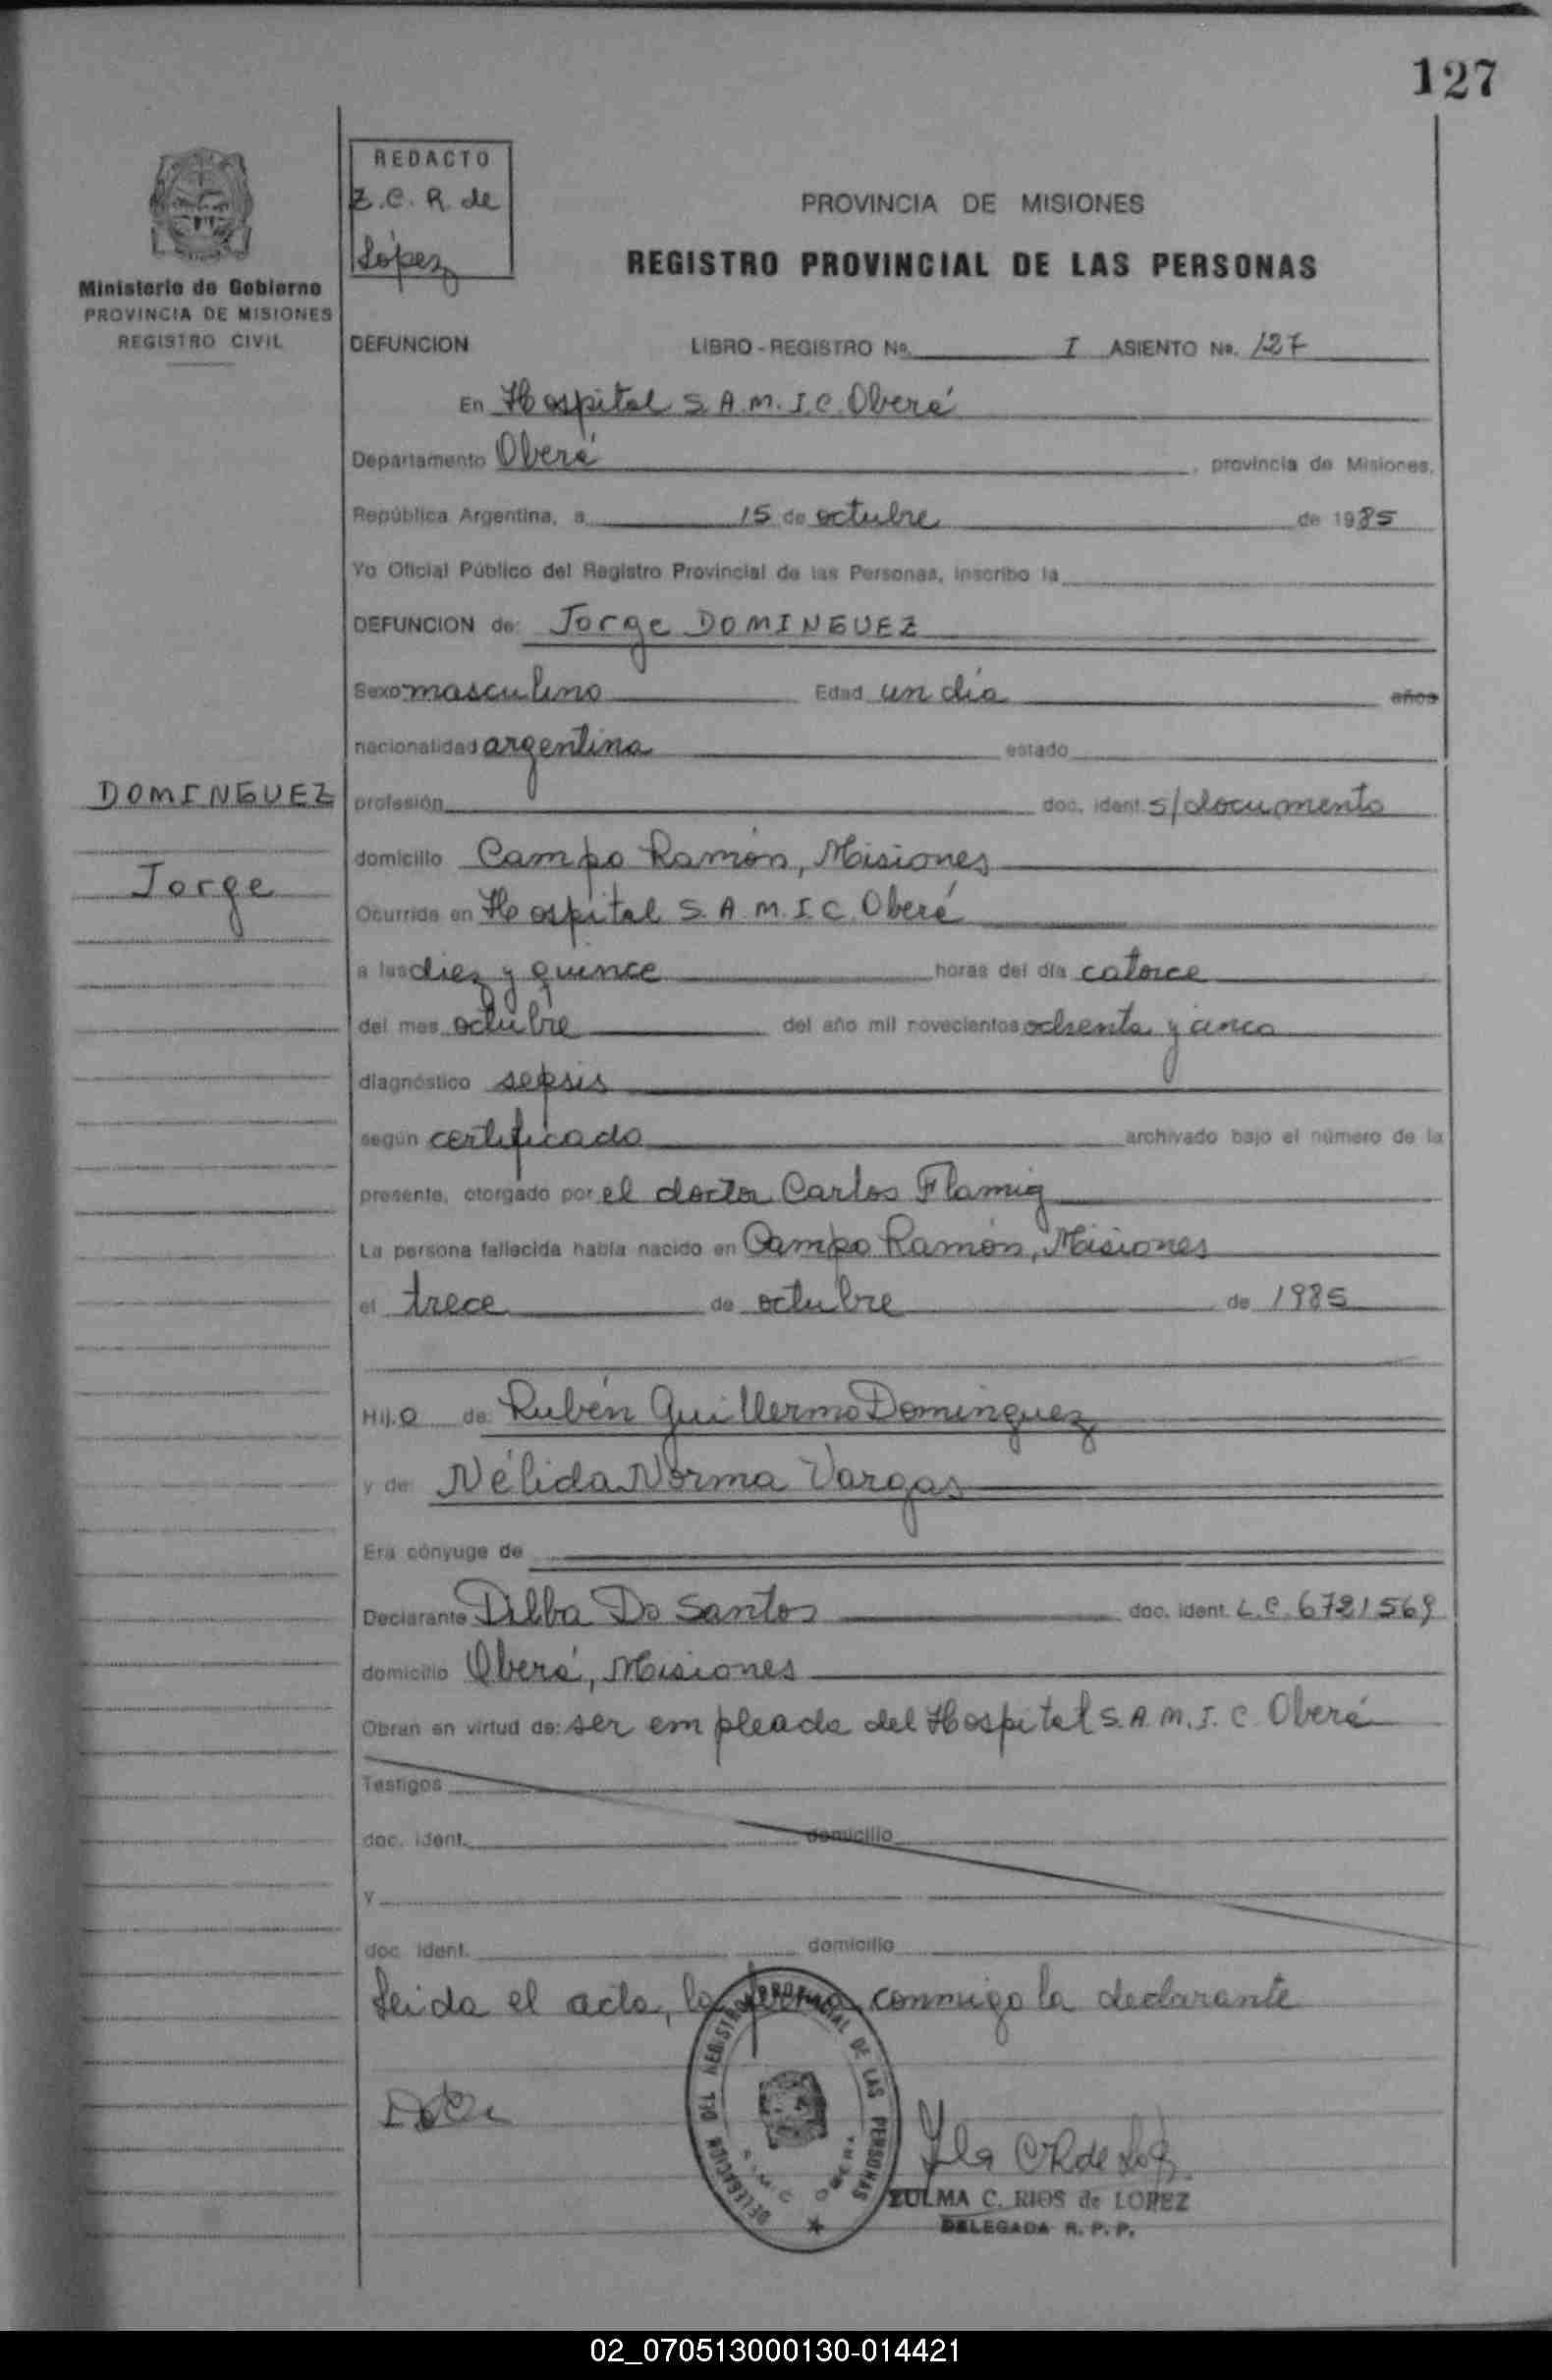 127
REDACTO
Z. C. R. de
López
Ministerio de Gobierno
PROVINCIA DE MISIONES
REGISTRO CIVIL
PROVINCIA DE MISIONES
REGISTRO PROVINCIAL DE LAS PERSONAS
DEFUNCION LIBRO - REGISTRO No. I ASIENTO No. 127
En Hospital S. A. M. I. C. Oberá
Departamento Oberá , provincia de Misiones.
República Argentina, a 15 de octubre de 1985
Yo Oficial Público del Registro Provincial de las Personas, inscribo la
DEFUNCION de: Jorge DOMINGUEZ
Sexo masculino Edad un día años
nacionalidad argentina estado
DOMINGUEZ
Jorge
profesión doc. ident. s/documento
domicilio Campo Ramón, Misiones
Ocurrida en Hospital S. A. M. I. C. Oberá
a las diez y quince horas del día catorce
del mes octubre del año mil novecientos ochenta y cinco
diagnóstico sepsis
según certificado archivado bajo el número de la
presente, otorgado por el doctor Carlos Flamig
La persona fallecida había nacido en Campo Ramón, Misiones
el trece de octubre de 1985
Hijo de: Rubén Guillermo Dominguez
y de: Nélida Norma Vargas
Era cónyuge de
Declarante Dilba Do Santos doc. ident. L. C. 6721569
domicilio Oberá, Misiones
Obran en virtud de: ser empleada del Hospital S. A. M. I. C. Oberá
Testigos
doc. ident. domicilio
y
doc. ident. domicilio
Leída el acta, la firma conmigo la declarante
DELEGACION DEL REGISTRO PROVINCIAL DE LAS PERSONAS
ZULMA C. RIOS de LOPEZ
DELEGADA R. P. P.
02_070513000130-014421